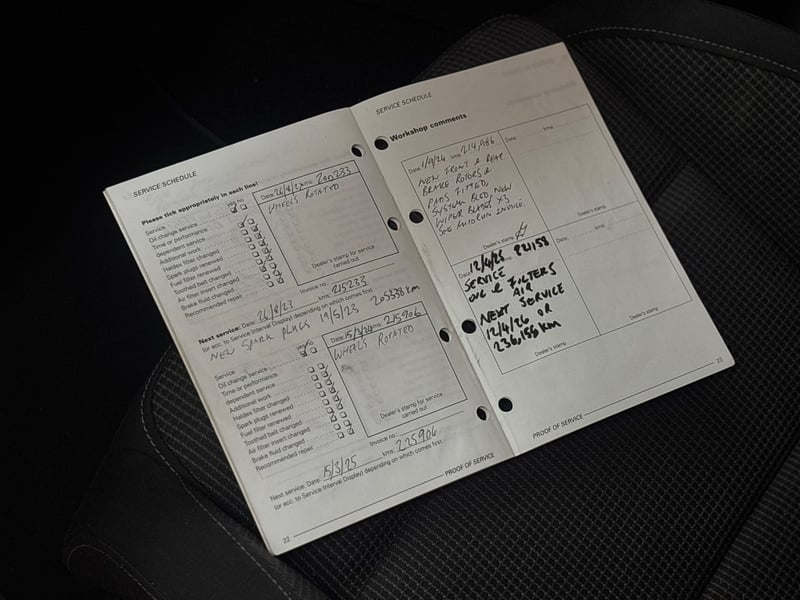 SERVICE SCHEDULE
Please tick appropriately in each line!
yes no
Service
Oil change service
Time or performance
dependent service
Additional work
Haldex filter changed
Spark plugs renewed
Fuel filter renewed
Toothed belt changed
Air filter insert changed
Brake fluid changed
Recommended repair
Date: 26/8/23 kms:
WHEELS ROTATED
Dealer's stamp for service
carried out
Next service: Date: 26/8/23 kms: 215233
(or acc. to Service Interval Display) depending on which comes first
NEW SPARK PLUGS 19/5/23 205338 km
yes no
Service
Oil change service
Time or performance
dependent service
Additional work
Haldex filter changed
Spark plugs renewed
Fuel filter renewed
Toothed belt changed
Air filter insert changed
Brake fluid changed
Recommended repair
Date: 15/3/24 kms: 215906
WHEELS ROTATED
Dealer's stamp for service
carried out
Invoice no.:
Next service: Date: 15/3/25 kms: 225906
(or acc. to Service Interval Display) depending on which comes first
PROOF OF SERVICE
22
SERVICE SCHEDULE
Workshop comments
Date: 1/9/24 kms: 214,986
NEW FRONT & REAR
BRAKE ROTORS &
PADS FITTED
SYSTEM BLED, NEW
WIPER BLADES X3
SEE AUTORUN INVOICE.
Dealer's stamp
Date: kms:
Dealer's stamp
Date: 12/4/25
SERVICE
OIL & FILTERS
AIR
NEXT SERVICE
12/4/26 OR
236,158 km
Dealer's stamp
Date: kms:
Dealer's stamp
PROOF OF SERVICE
23